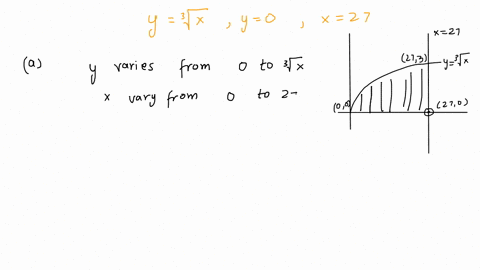 y = ∛x , y=0 , x=27
(a) y varies from 0 to ∛x
x vary from 0 to 2
x=27
(27,3)
y=∛x
(0,0)
(27,0)